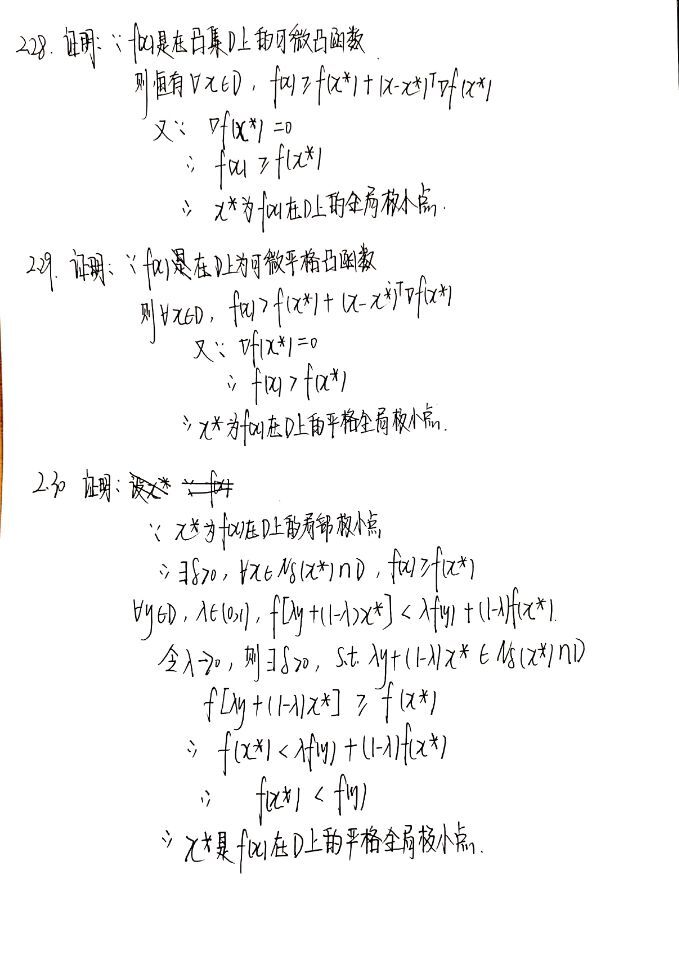 2.28. 证明：∵ f(x)是在凸集D上的可微凸函数
则恒有∀x∈D, f(x) ≥ f(x*) + (x-x*)ᵀ∇f(x*)
又∵ ∇f(x*) = 0
∴ f(x) ≥ f(x*)
∴ x*为f(x)在D上的全局极小点.
2.29. 证明：∵ f(x)是在D上为可微严格凸函数
则∀x∈D, f(x) > f(x*) + (x-x*)ᵀ∇f(x*)
又∵ ∇f(x*) = 0
∴ f(x) > f(x*)
∴ x*为f(x)在D上的严格全局极小点.
2.30 证明：设x* ∵ f(x)
∵ x*为f(x)在D上的局部极小点
∴ ∃δ>0, ∀x∈Nδ(x*)∩D, f(x) ≥ f(x*)
∀y∈D, λ∈(0,1), f[λy+(1-λ)x*] < λf(y) + (1-λ)f(x*).
令λ→0, 则∃δ>0, s.t. λy+(1-λ)x* ∈ Nδ(x*)∩D
f[λy+(1-λ)x*] ≥ f(x*)
∴ f(x*) < λf(y) + (1-λ)f(x*)
∴ f(x*) < f(y)
∴ x*是f(x)在D上的严格全局极小点.